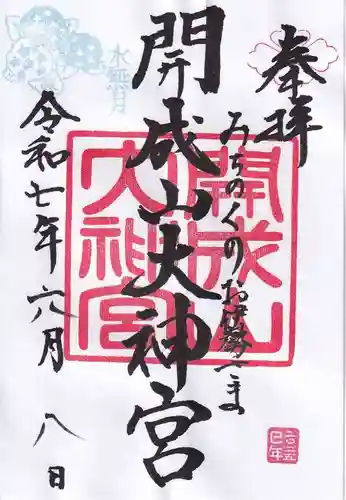 奉拝
みちのくのお伊勢さま
開成山大神宮
開成山大神宮
水無月
令和七年六月八日
二〇二五
巳年